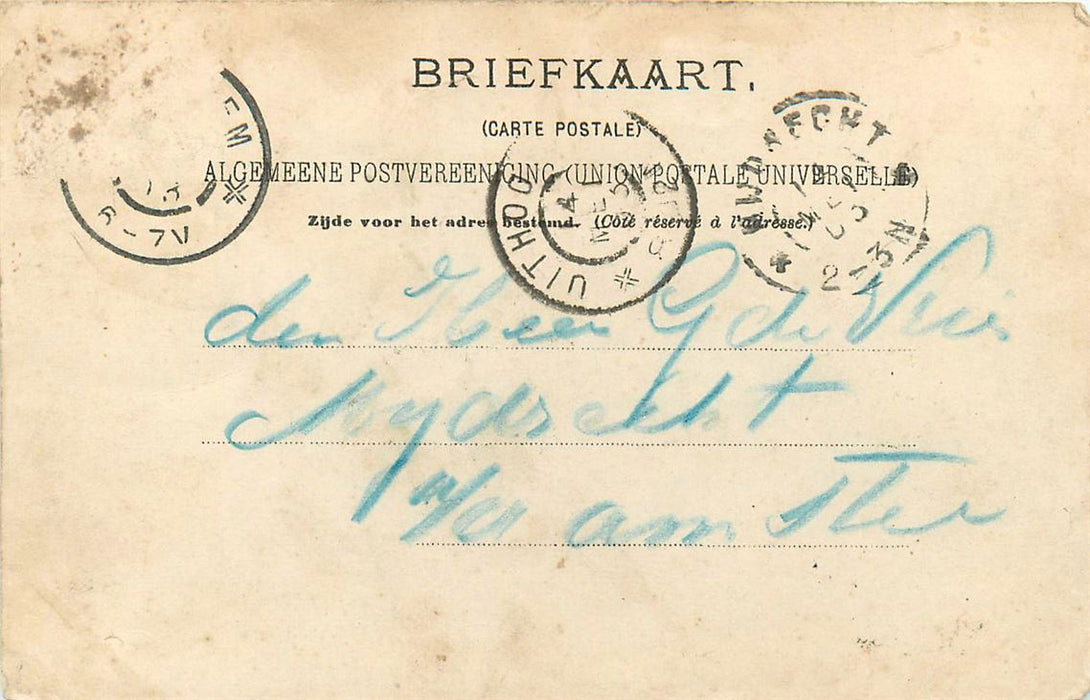 BRIEFKAART.
(CARTE POSTALE)
ALGEMEENE POSTVEREENIGING (UNION POSTALE UNIVERSELLE)
Zijde voor het adres bestemd. (Côté réservé à l'adresse.)
EM
8-7V
UITHOO
MEI
RECHT
2-3N
den Heer G de Vries
Mydrecht
a/d amstel